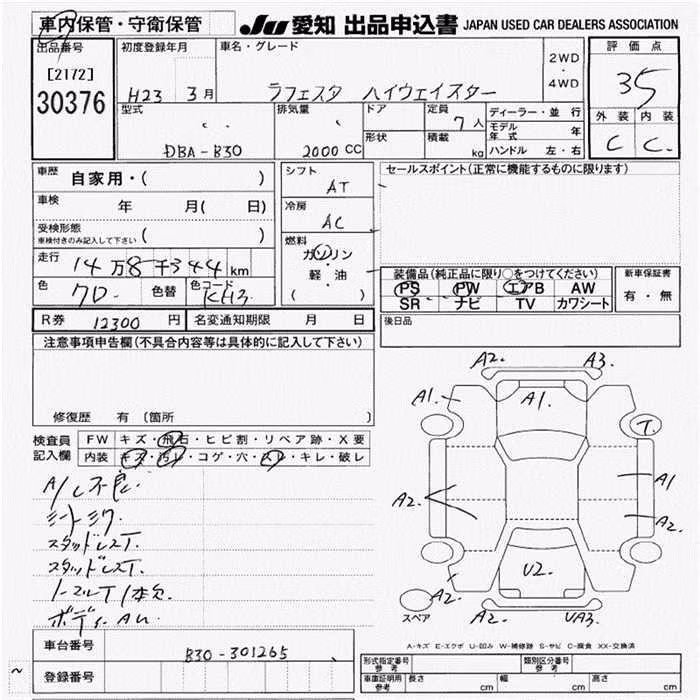 車内保管・守衛保管
JU 愛知 出品申込書 JAPAN USED CAR DEALERS ASSOCIATION
出品番号
[2172]
30376
初度登録年月
H23 3月
車名・グレード
ラフェスタ ハイウェイスター
2WD
・
4WD
評価点
35
外装 内装
C C
型式
DBA-B30
排気量
2000 CC
ドア
形状
定員
7人
積載
kg
ディーラー・並行
モデル年式 年
ハンドル 左・右
車歴
自家用・( )
車検
年 月( 日)
受検形態
車検付きのみ記入して下さい ( )
走行
14万8千344km
色
色替
色コード
KH3
シフト
AT
冷房
AC
燃料
ガソリン
・
軽・油
( )
セールスポイント(正常に機能するものに限ります)
装備品(純正品に限り○をつけてください)
PS PW エアB AW
SR ナビ TV カワシート
新車保証書
有・無
後日品
R券 12300円 名変通知期限 月 日
注意事項申告欄(不具合内容等は具体的に記入して下さい)
修復歴 有 [箇所 ]
検査員
記入欄
FW キズ・飛石・ヒビ割・リペア跡・X要
内装 キズ・汚レ・コゲ・穴・スレ・キレ・破レ
スタッドレスT.
スタッドレスT.
ノーマルT1本欠.
A2. A3.
A1. A1.
T.
A2 A1
A2.
U2.
A2.
A2. UA3.
スペア
A-キズ E-エクボ U-凹み W-補修跡 S-サビ C-腐食 XX-交換済
車台番号
B30-301265
登録番号
形式指定番号 参考
類別区分番号 参考
車庫証明用 参考 長さ cm 幅 cm 高さ cm